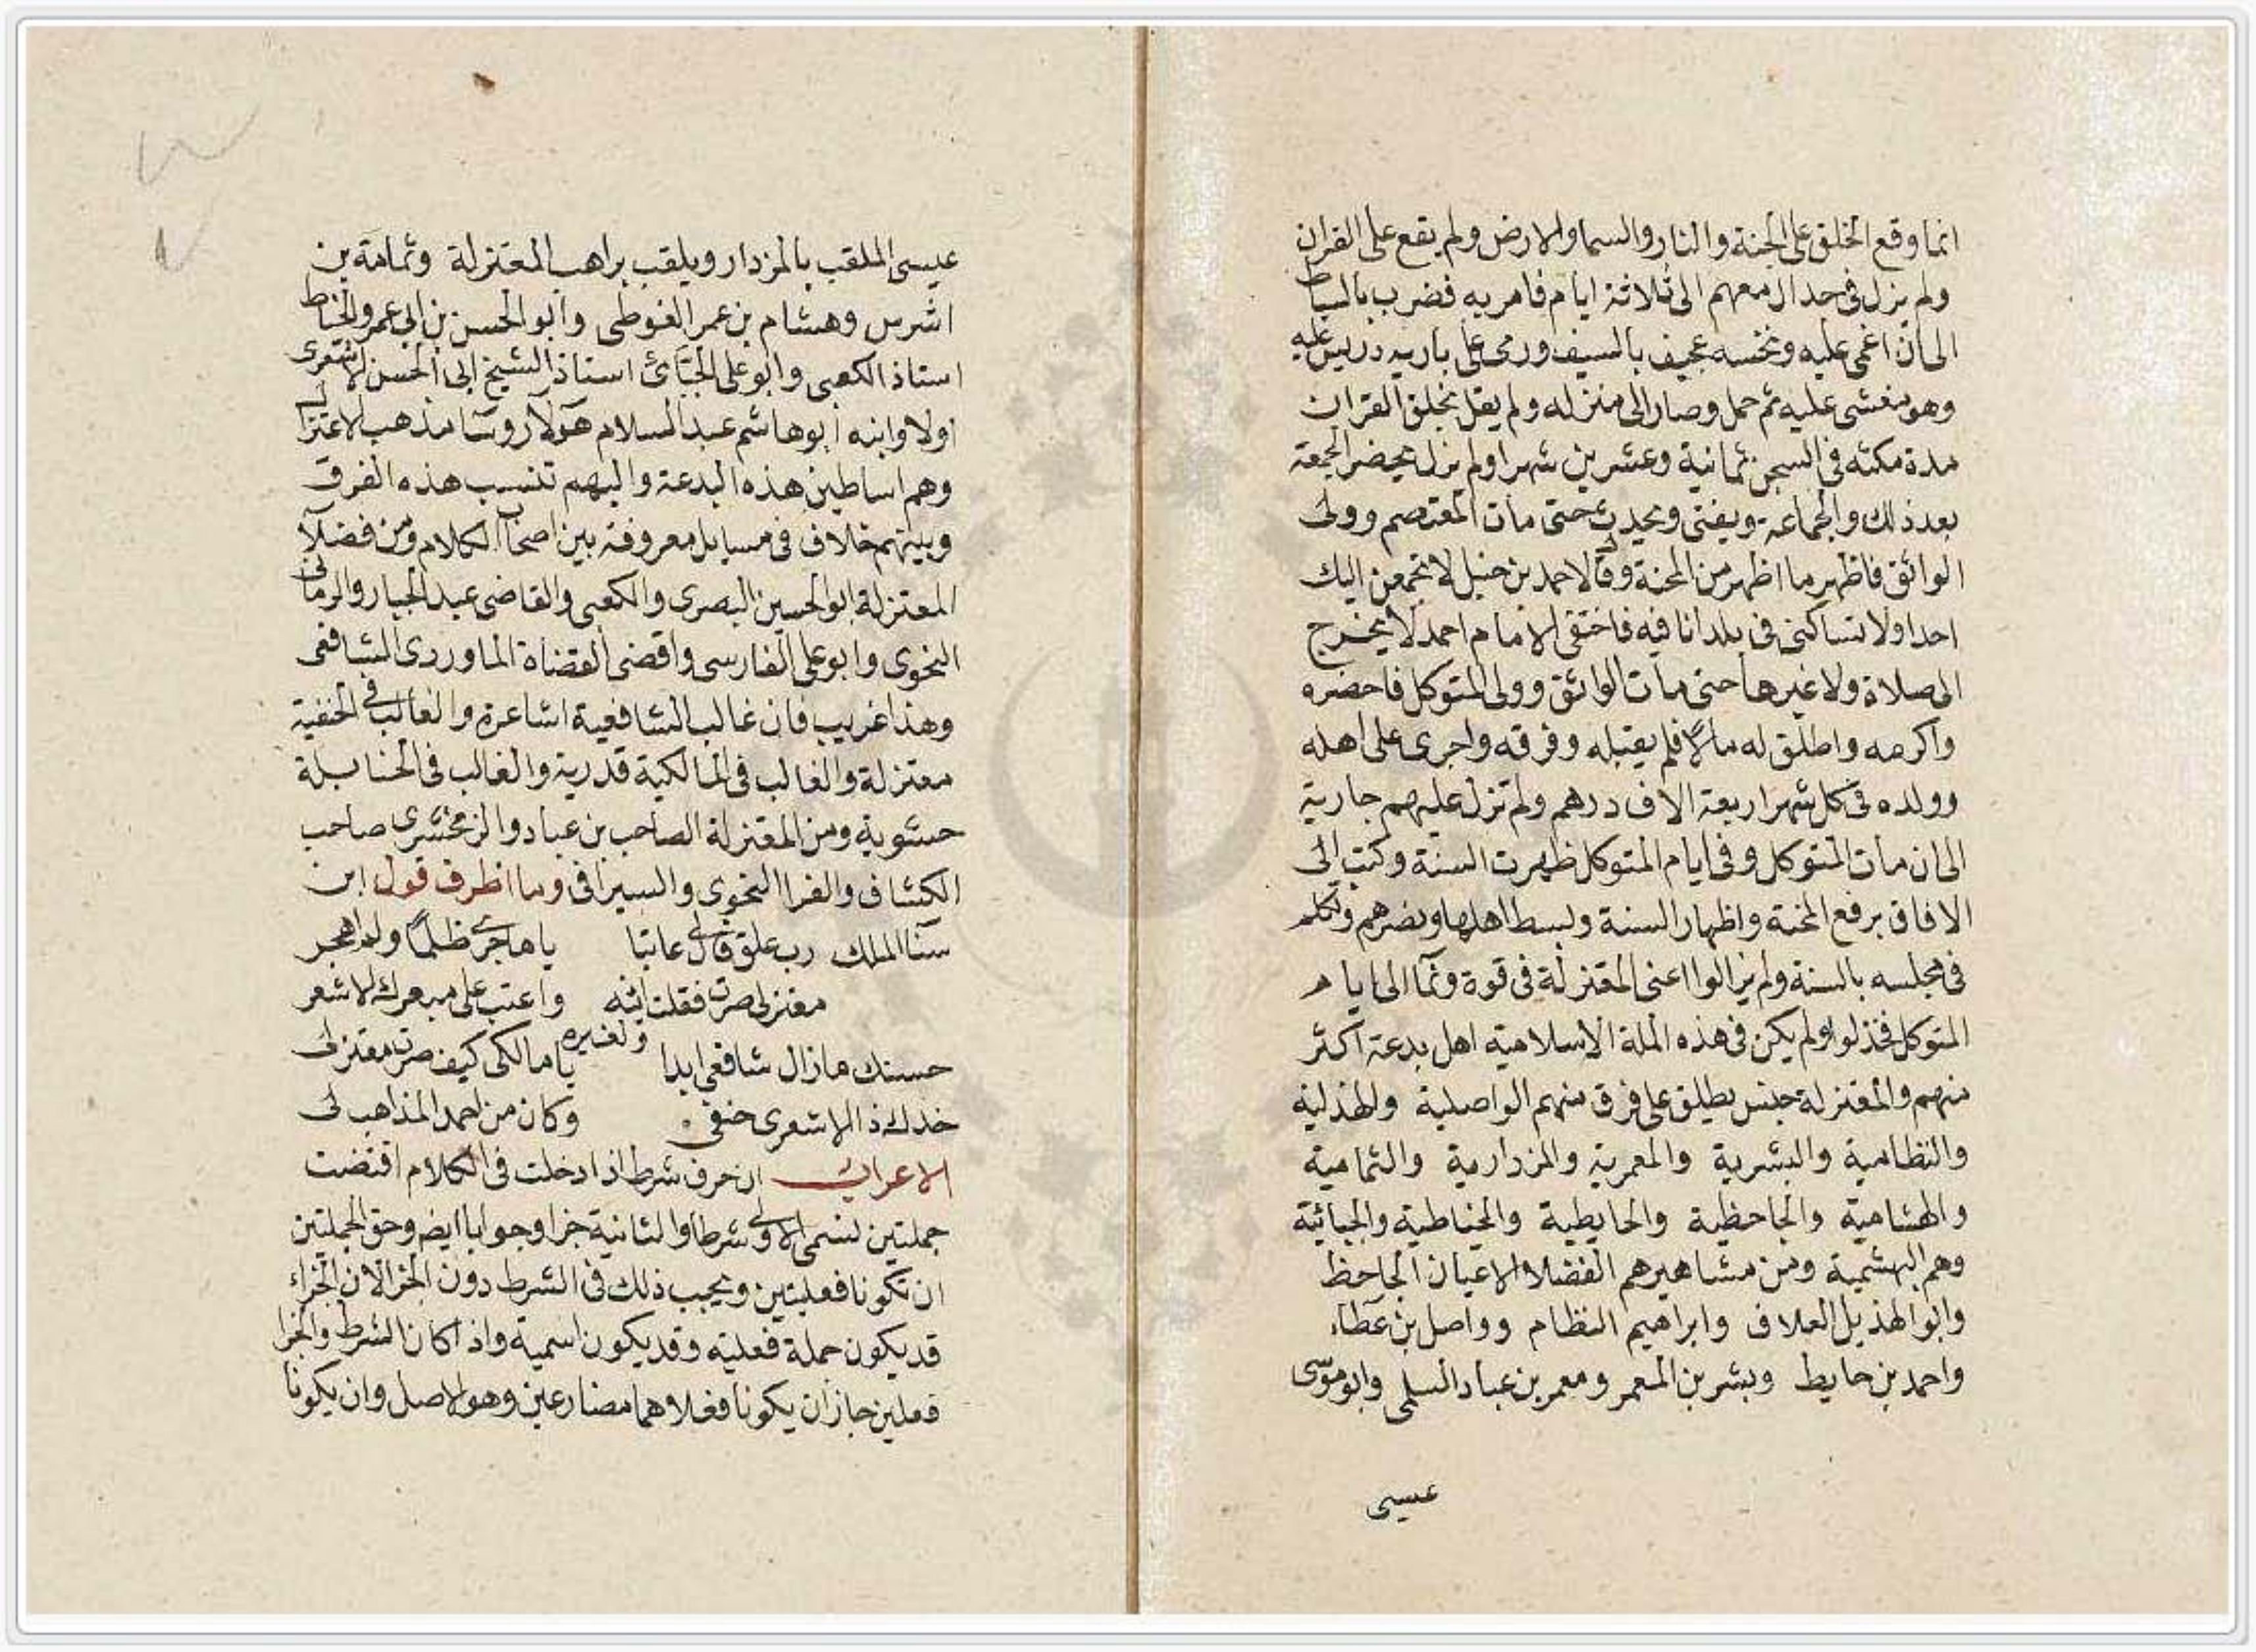 انما وقع الخلق على الجنة والنار والسما والارض ولم يقع على القران
ولم يزل في جدال معهم الى ثلاثة ايام فامر به فضرب بالسياط
الى ان اغمى عليه ونخسه عجيف بالسيف ورمى على باريه دريس عليه
وهو مغشى عليه ثم حمل وصار الى منزله ولم يقل بخلق القران
مدة مكثه في السجن ثمانية وعشرين شهرا ولم يزل يحضر الجمعة
بعد ذلك والجماعة ويفتى ويحدث حتى مات المعتصم وولى
الواثق فاظهر ما اظهر من المحنة وقال لاحمد بن حنبل لا تجمعن اليك
احدا ولا تساكنى في بلد انا فيه فاختفى الامام احمد لا يخرج
الى صلاة ولا غيرها حتى مات الواثق وولى المتوكل فاحضره
واكرمه واطلق له مالا فلم يقبله وفرقه واجرى على اهله
وولده في كل شهر اربعة الاف درهم ولم تزل عليهم جارية
الى ان مات المتوكل وفي ايام المتوكل ظهرت السنة وكتب الى
الافاق برفع المحنة واظهار السنة وبسط اهلها ونصرهم وتكلم
في مجلسه بالسنة ولم يزالوا اعنى المعتزلة في قوة ونما الى ايام
المتوكل فخذلوا ولم يكن في هذه الملة الاسلامية اهل بدعة اكثر
منهم والمعتزلة جنس يطلق على فرق منهم الواصلية والهذلية
والنظامية والبشرية والمعمرية والمزدارية والثمامية
والهشامية والجاحظية والحايطية والخياطية والجبائية
وهم البهشمية ومن مشاهيرهم الفضلا الاعيان الجاحظ
وابو الهذيل العلاف وابراهيم النظام وواصل بن عطاء
واحمد بن حايط وبشر بن المعمر ومعمر بن عباد السلمى وابو موسى
عيسى
عيسى الملقب بالمزدار ويلقب براهب المعتزلة وثمامة بن
اشرس وهشام بن عمر الفوطى وابو الحسن بن ابى عمرو الخياط
استاذ الكعبى وابو على الجبائ استاذ الشيخ ابى الحسن الاشعرى
اولا وابنه ابو هاشم عبد السلام هولآ روسا مذهب الاعتزال
وهم اساطين هذه البدعة واليهم تنسب هذه الفرق
وبينهم خلاف في مسايل معروفة بين اصحاب الكلام ومن فضلآ
المعتزلة ابو الحسين البصرى والكعبى والقاضى عبد الجبار والرمانى
النحوى وابو على الفارسى واقضى القضاة الماوردى الشافعى
وهذا غريب فان غالب الشافعية اشاعرة والغالب في الحنفية
معتزلة والغالب في المالكية قدرية والغالب في الحنابلة
حشوية ومن المعتزلة الصاحب بن عباد والزمخشرى صاحب
الكشاف والفرا النحوى والسيرافى وما اظرف قول ابن
سنا الملك رب علق قال لى عاتبا يا هاجرى ظلما ولم اهجر
معتزلى صرت فقلت اتئه واعتب على مبعرك الاشعر
ولغيره
حسنك مازال شافعى ابدا يا مالكى كيف صرت معتزلى
خدك ذا الاشعرى حنفى وكان من احمد المذاهب لى
الاعراب ان حرف شرط اذا دخلت في الكلام اقتضت
جملتين تسمى الاولى شرطا والثانية جزا وجوابا ايض وحق الجملتين
ان تكونا فعليتين ويجب ذلك في الشرط دون الجزا لان الجزاء
قد يكون جملة فعلية وقد يكون اسمية واذا كان الشرط والجزا
فعلين جاز ان يكونا فعلاهما مضارعين وهو الاصل وان يكونا